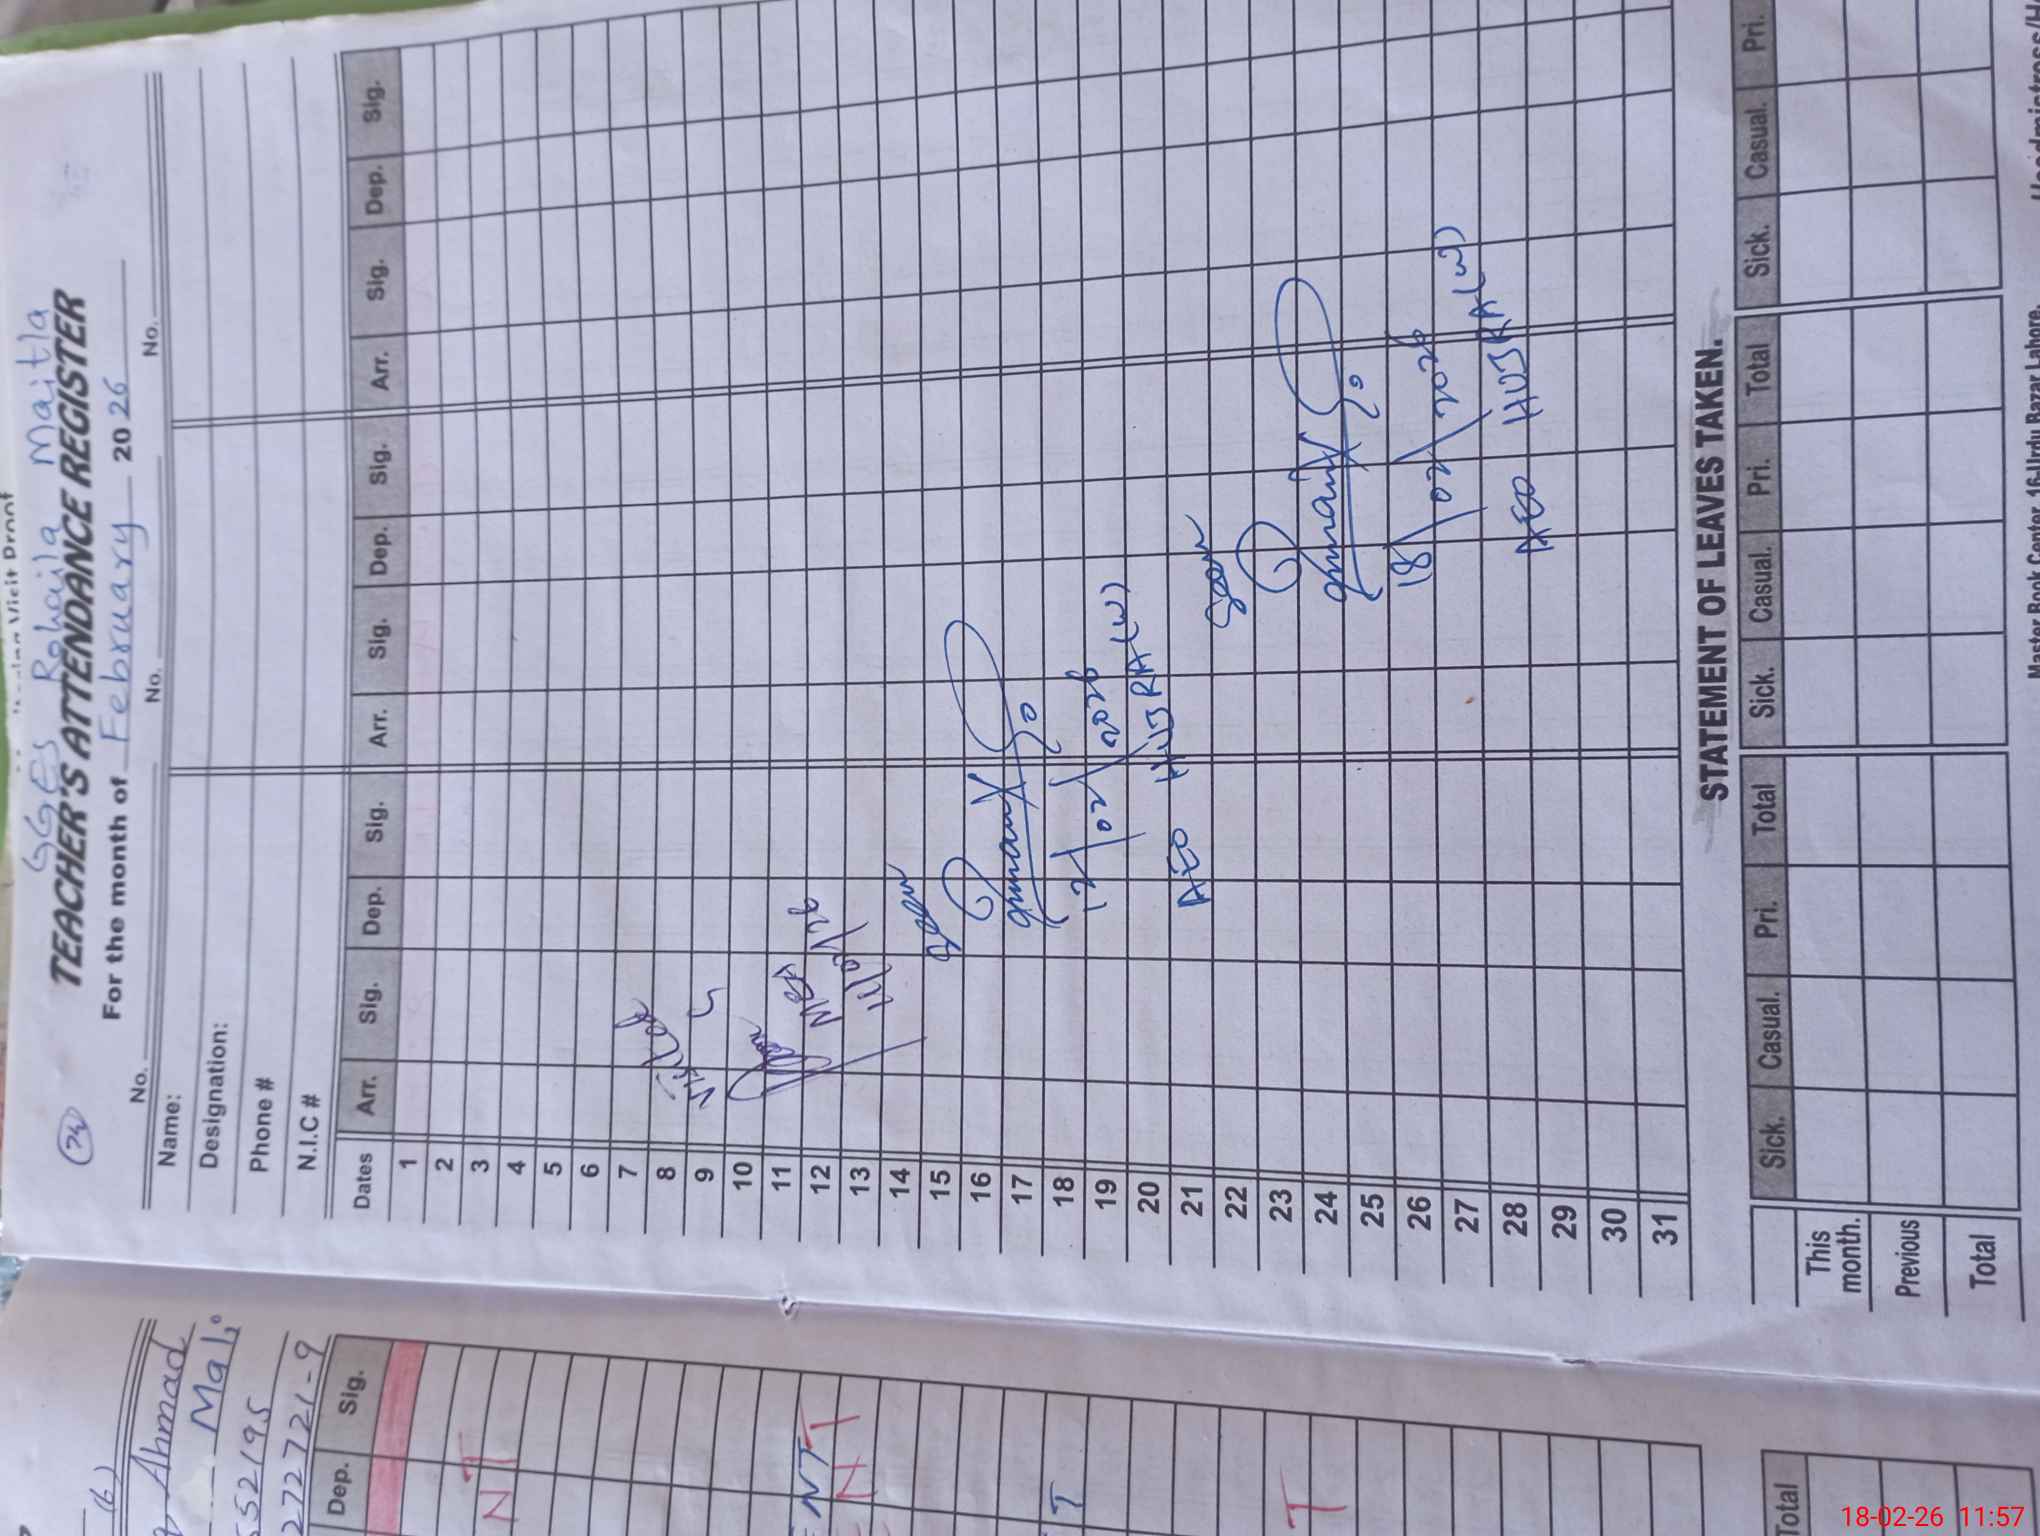 GGES Rohaila Maitla
TEACHER'S ATTENDANCE REGISTER
For the month of February 2026
No. No. No.
Name:
Designation:
Phone #
N.I.C #
Dates Arr. Sig. Dep. Sig. Arr. Sig. Dep. Sig. Arr. Sig. Dep. Sig.
1
2
3
4
5
6
7
8
9
10
11
12
13
14
15
16
17
18
19
20
21
22
23
24
25
26
27
28
29
30
31
Visited
MEA
11/02/26
Seen
12/02/2026
AEO HUJRA(W)
Seen
18/02/2026
AEO HUJRA(W)
STATEMENT OF LEAVES TAKEN.
Sick. Casual. Pri. Total Sick. Casual. Pri. Total Sick. Casual. Pri.
This month.
Previous
Total
Master Book Center, 16 Urdu Bazar Lahore.
(6)
Ahmad
Mali
552195
272721-9
Dep. Sig.
NT
NT
NT
T
T
Total
18-02-26 11:57